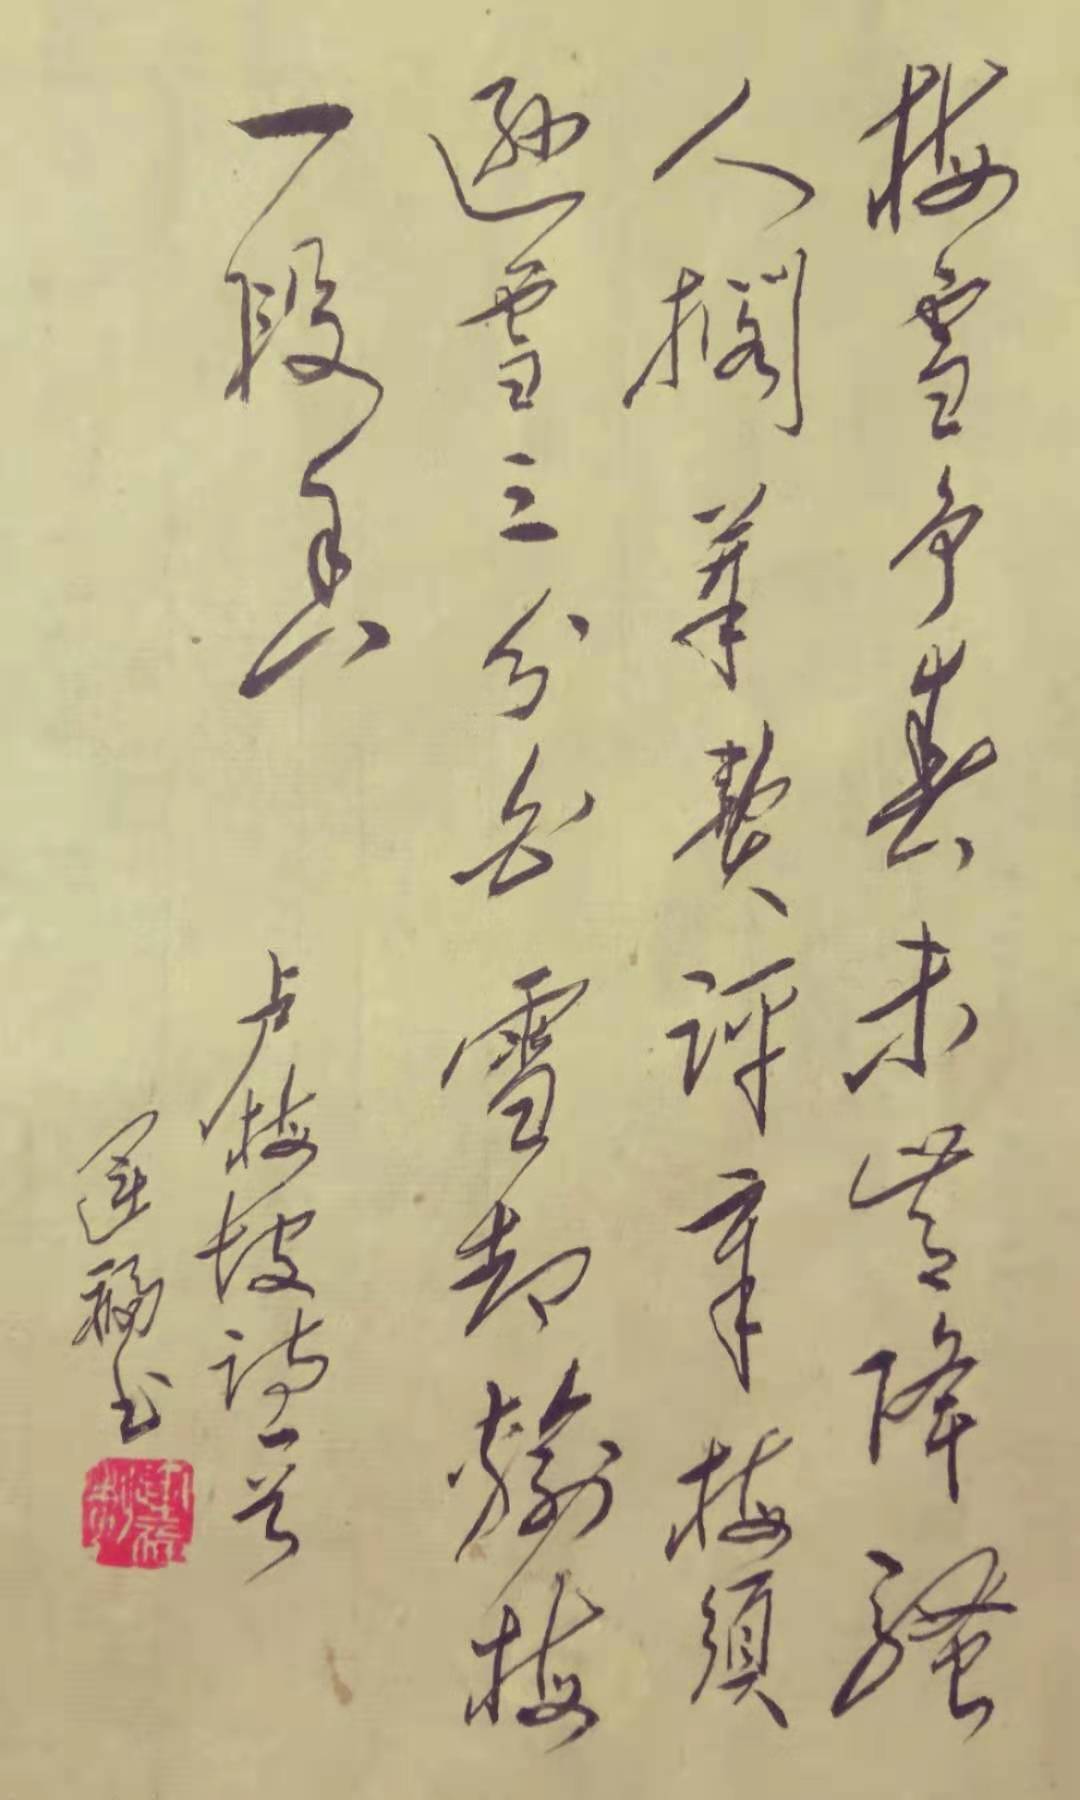 梅雪争春未肯降骚
人搁笔费评章梅须
逊雪三分白雪却输梅
一段香
卢梅坡诗一首
运福书